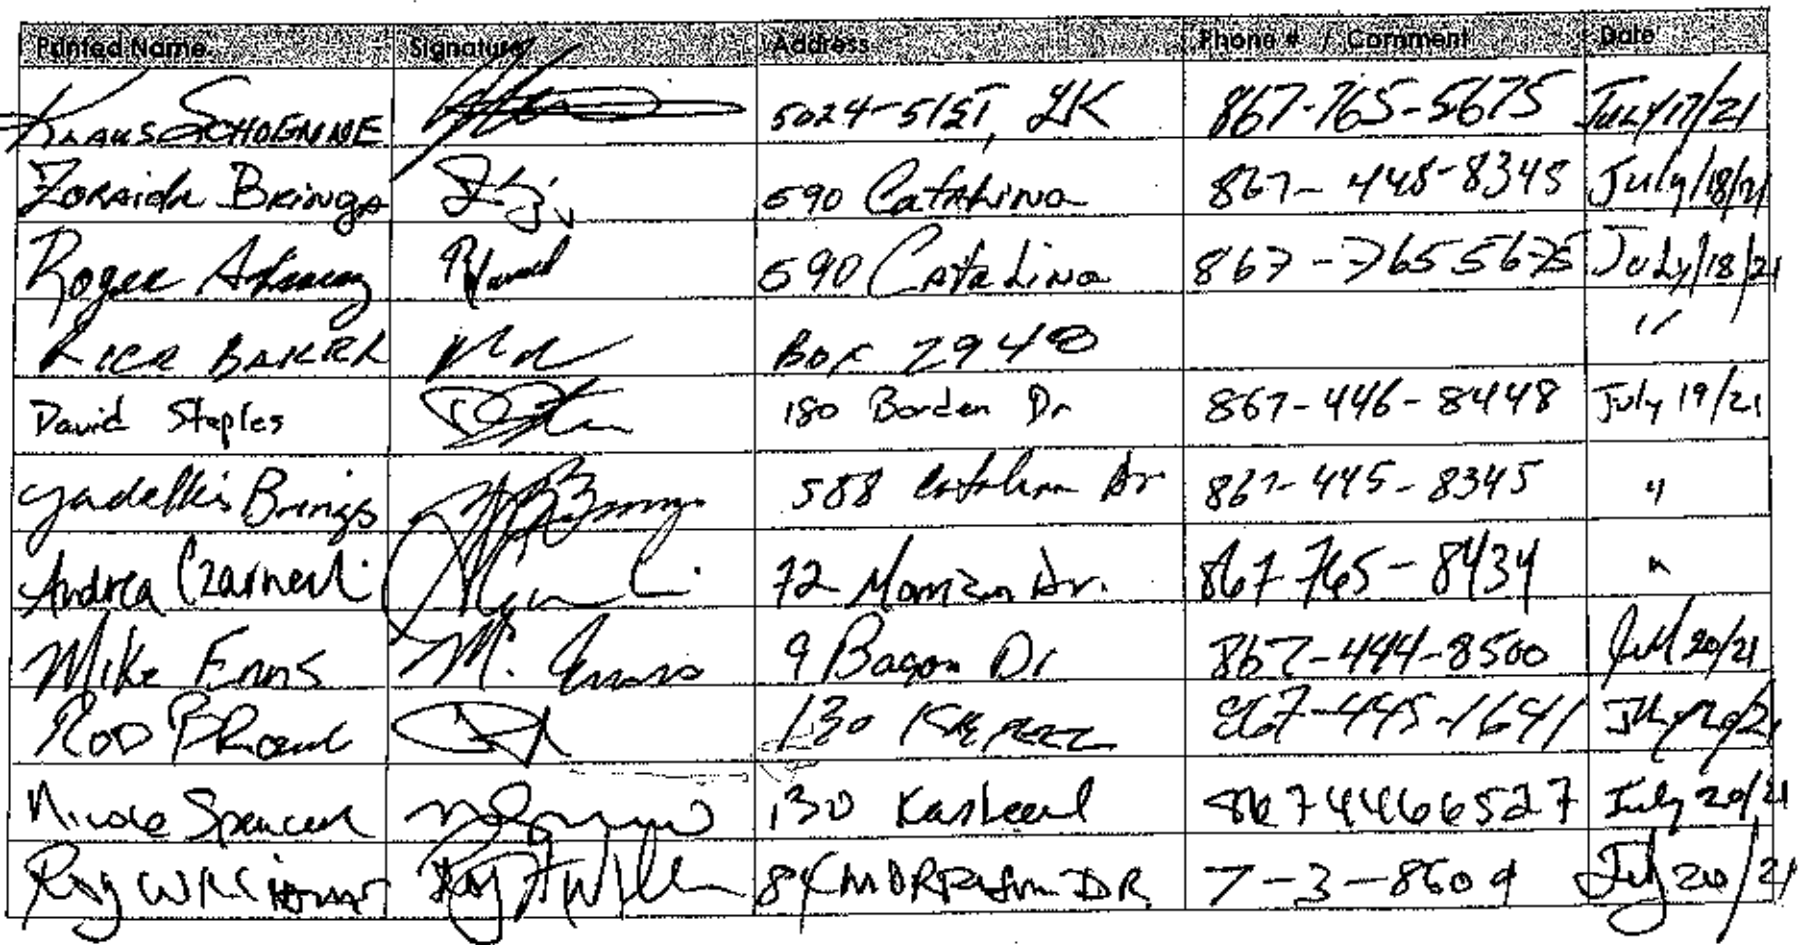 Printed Name Signature Address Phone # / Comment Date
KLAUS SCHOENNE 5024-51ST, YK 867-765-5675 July/17/21
Zoraida Brings 590 Catalina 867-445-8345 July/18/21
Roger 590 Catalina 867-765 5675 July/18/21
BAKER Box 2940 "
David Staples 180 Borden Dr 867-446-8448 July 19/21
Yadelkis Brings 588 Catalina Dr 867-445-8345 "
Andrea Czarnecki 72 Dr. 867-765-8434 "
Mike Enns M. Enns 9 Bagon Dr 867-444-8500 Jul 20/21
Rod 130 867-445-1641 July 20/21
Nicole Spencer 130 8674466527 July 20/21
Ray Williams DR. 7-3-8609 July 20/21